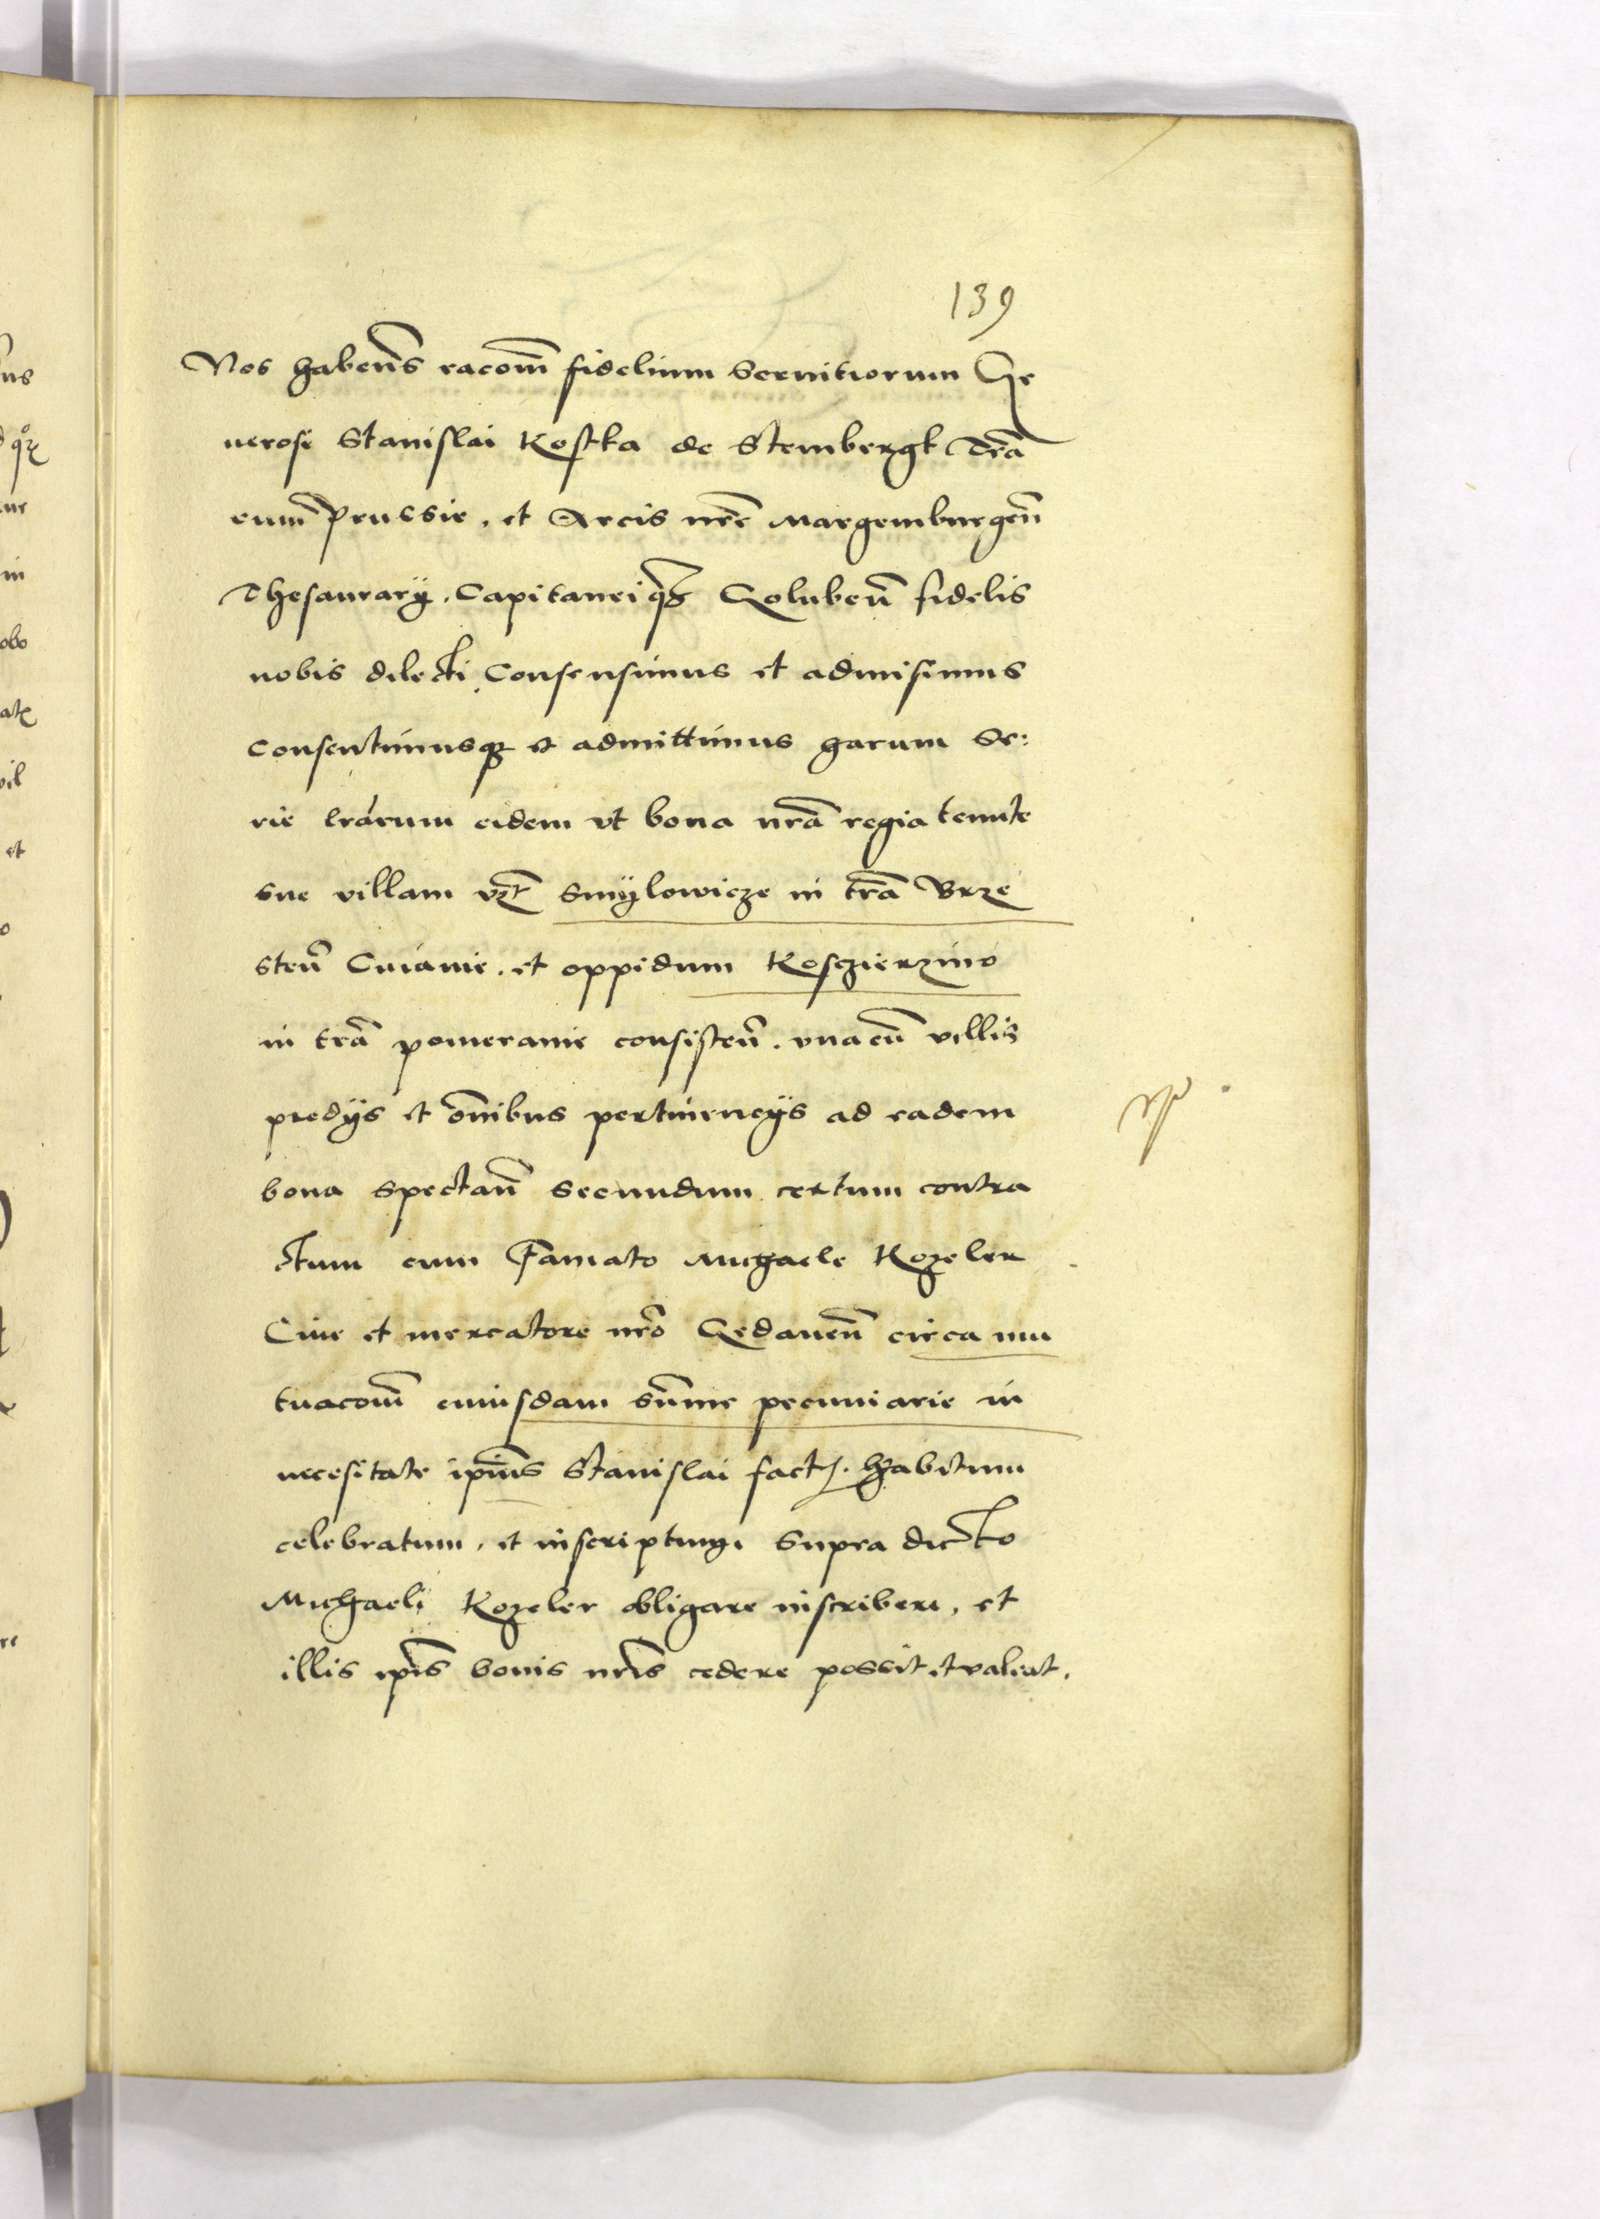 139
Nos habens̄ racom̄ fidelium servitiorum Ge
nerosi Stanislai Kostka de Stembergk Trā
rum Prussie, et Arcis nrē Margemburgen̄
Thesaurarÿ, Capitanei qʒ Goluben̄ fidelis
nobis dilecti, Consensimus et admisimus
consentimusqꝫ et admittimus harum se:
rie lrārum eidem ut bona nrā regia tenute
sue villam vʒt Smÿlowicze in trā Brze
sten̄ Cuiavie, et oppidum Kosczierzino
in trā pomeranie consisten̄. una cū villis
predÿs et oīnibus pertinencÿs ad eadem
bona spectan̄ secundum certum contra
ctum cum Famato Michaele Kozeler
Cive et mercatore nrō Gedanen̄ circa mu
tuacom̄ cuiusdam sūme pecuniarie in
necesitate ipīus Stanislai fact. habitum
celebratum, et inscriptum, supra dicto
Michaeli Kozeler obligare inscribere, et
illis ipīs bonis nrīs cedere possit et valeat.